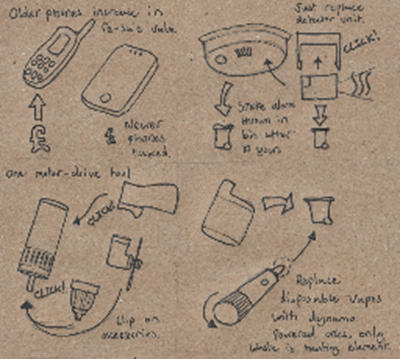 Older phones increase in
re-sale value.
£
£ Newer
phones
taxed.
Just replace
detector unit.
CLICK!
Smoke alarm
thrown in
bin after
10 years
One motor-drive tool
CLICK!
CLICK!
Clip on
accessories.
Replace
disposable vapes
with dynamo
powered ones, only
waste is heating element.